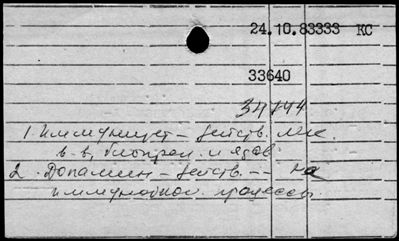 24.10.83333 КС
33640
34144
1. Иммунитет – действ. лек.
в-в, биопреп. и ядов
2. Допамин – действ. -- на
иммунологич. процессы